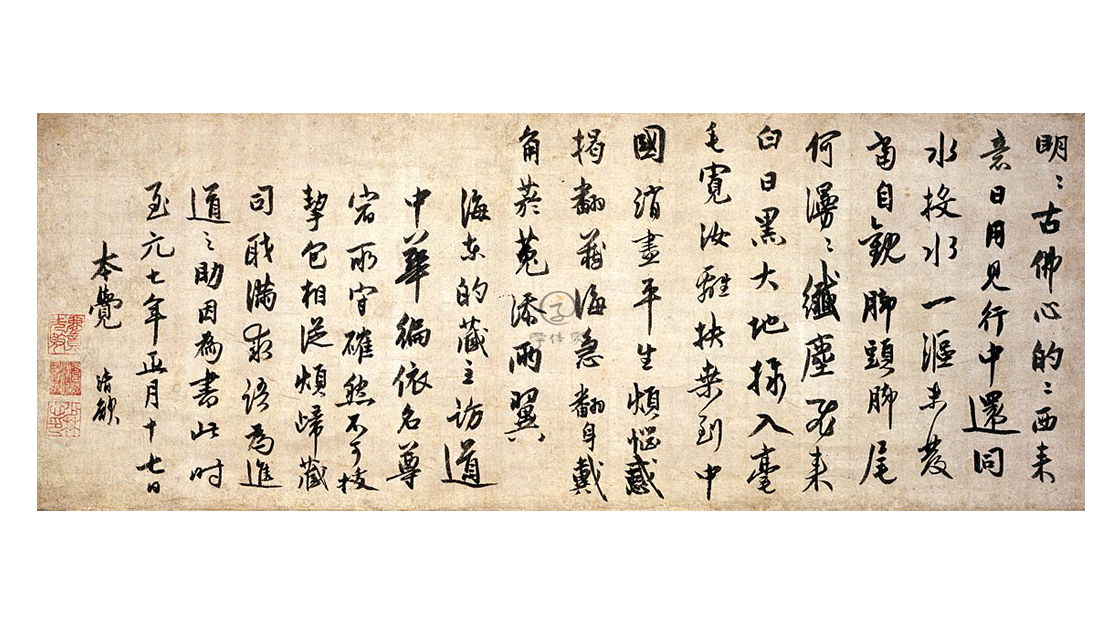 明〻古佛心的〻西来
意日用見行中還同
水投水一漚未發
當自觀脚頭脚尾
何漫〻纖塵若来
白日黑大地入毫
毛寬汝離扶桒到中
國消盡平生煩惱惑
揭翻藏海急翻身戴
角菸菟添兩翼
海東的藏主訪道
中華徧依名尊
宿所守確然不可拔
挈包相從煩歸藏
司職滿求語為進
道之助因為書此时
至元七年正月十七日
本覺 清欲